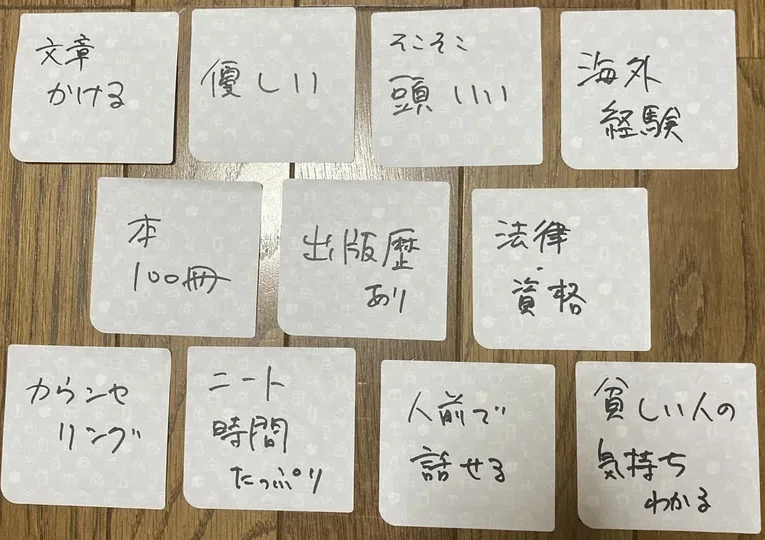 文章
かける
優しい
そこそこ
頭いい
海外
経験
本
100冊
出版歴
あり
法律・
資格
カウンセ
リング
ニート
時間
たっぷり
人前で
話せる
貧しい人の
気持ち
わかる